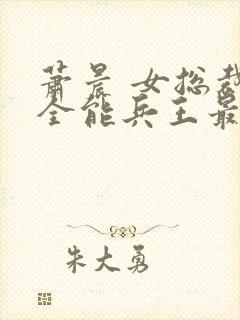 萧晨 女总裁
全能兵王最
朱大勇